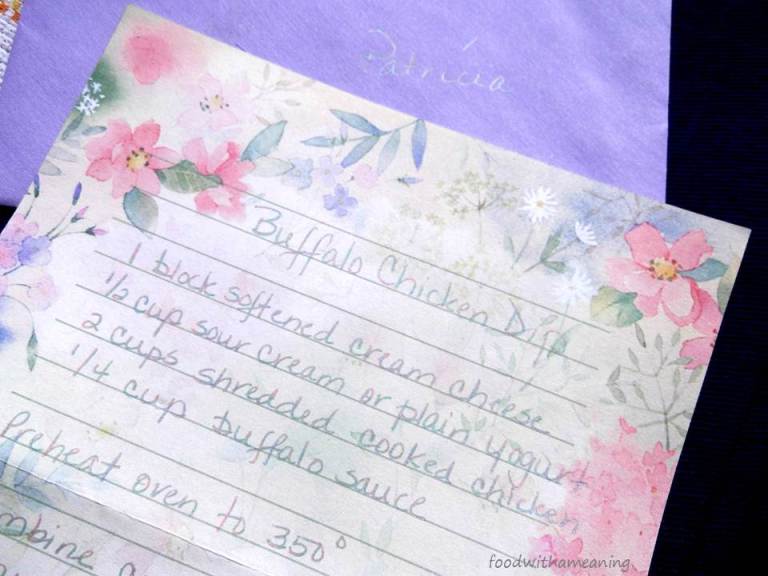 Patricia
Buffalo Chicken Dip
1 block softened cream cheese
1/2 cup sour cream or plain yogurt
2 cups shredded cooked chicken
1/4 cup buffalo sauce
Preheat oven to 350°
foodwithameaning